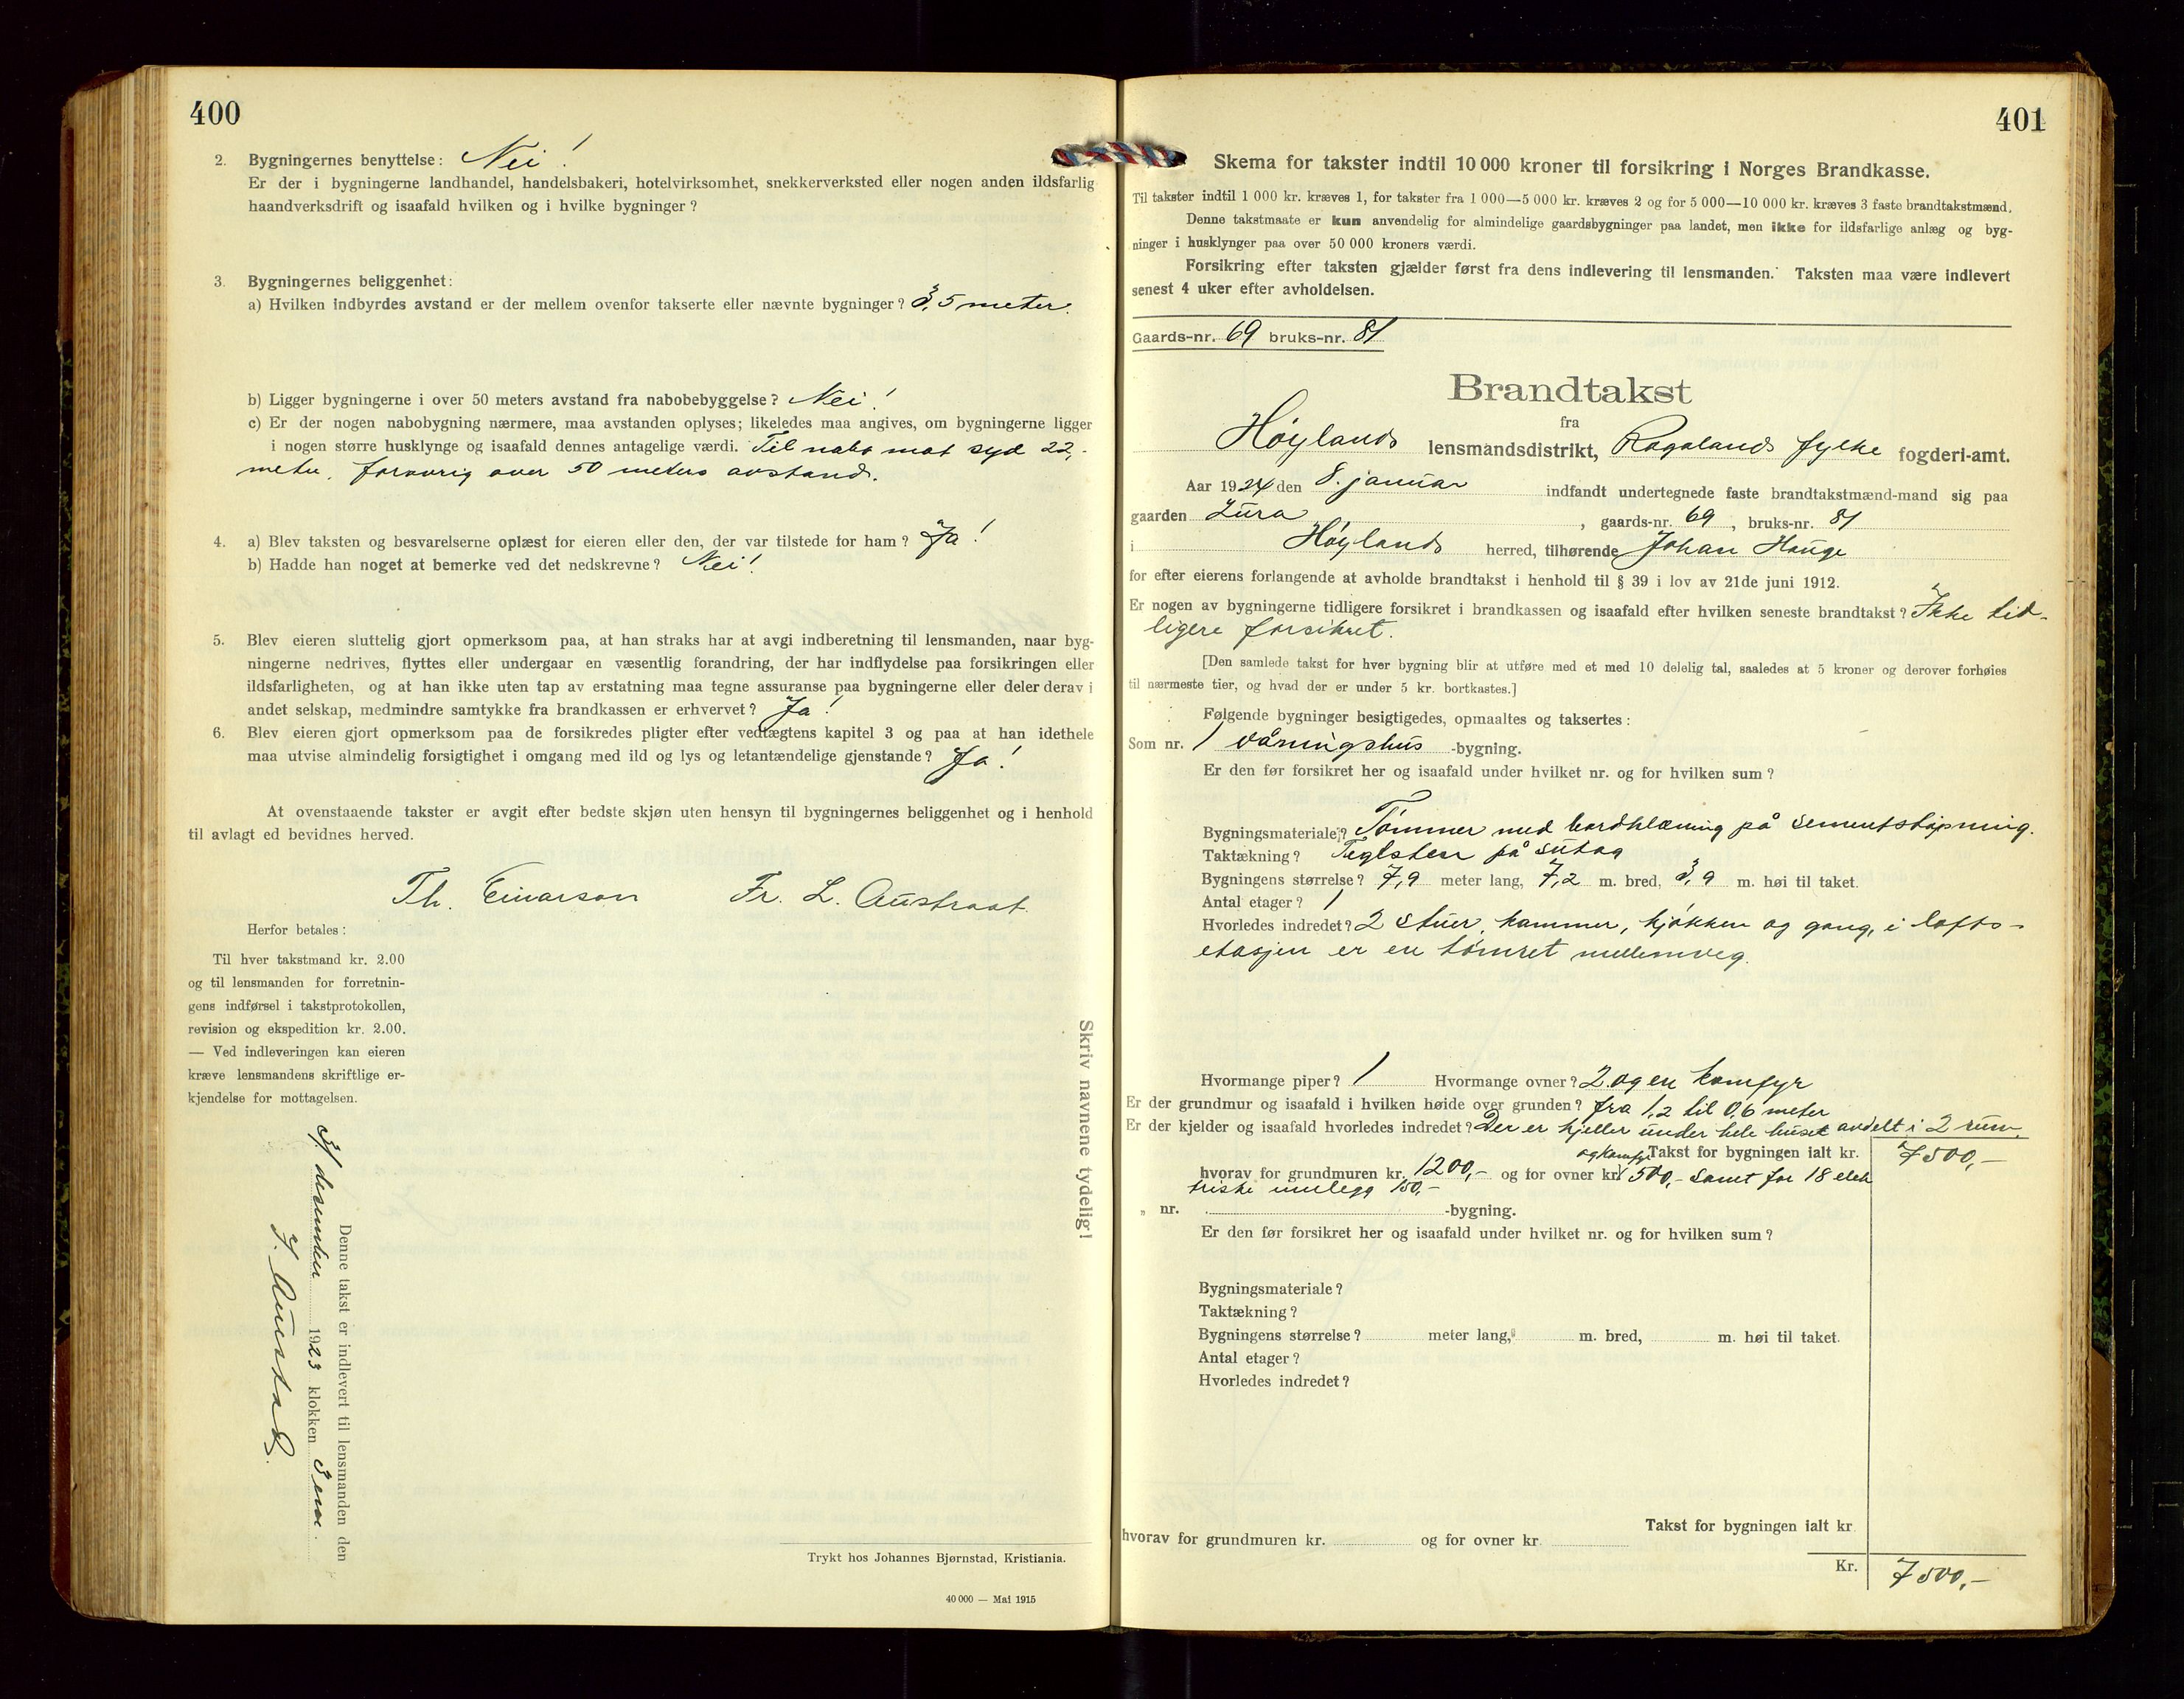 400
2. Bygningernes benyttelse: Nei!
Er der i bygningerne landhandel, handelsbakeri, hotelvirksomhet, snekkerverksted eller nogen anden ildsfarlig
haandverksdrift og isaafald hvilken og i hvilke bygninger?
3. Bygningernes beliggenhet:
a) Hvilken indbyrdes avstand er der mellem ovenfor takserte eller nævnte bygninger? 3,5 meter.
b) Ligger bygningerne i over 50 meters avstand fra nabobebyggelse? Nei!
c) Er der nogen nabobygning nærmere, maa avstanden oplyses; likeledes maa angives, om bygningerne ligger
i nogen større husklynge og isaafald dennes antagelige værdi. Til nabo mot syd 22,-
meter, forøvrig over 50 meters avstand.
4. a) Blev taksten og besvarelserne oplæst for eieren eller den, der var tilstede for ham? Ja!
b) Hadde han noget at bemerke ved det nedskrevne? Nei!
5. Blev eieren sluttelig gjort opmerksom paa, at han straks har at avgi indberetning til lensmanden, naar byg-
ningerne nedrives, flyttes eller undergaar en væsentlig forandring, der har indflydelse paa forsikringen eller
ildsfarligheten, og at han ikke uten tap av erstatning maa tegne assuranse paa bygningerne eller deler derav i
andet selskap, medmindre samtykke fra brandkassen er erhvervet? Ja!
6. Blev eieren gjort opmerksom paa de forsikredes pligter efter vedtægtens kapitel 3 og paa at han idethele
maa utvise almindelig forsigtighet i omgang med ild og lys og letantændelige gjenstande? Ja!
At ovenstaaende takster er avgit efter bedste skjøn uten hensyn til bygningernes beliggenhet og i henhold
til avlagt ed bevidnes herved.
Th. Einarson Fr. L. Austraat.
Herfor betales:
Til hver takstmand kr. 2.00
og til lensmanden for forretnin-
gens indførsel i takstprotokollen,
revision og ekspedition kr. 2.00.
— Ved indleveringen kan eieren
kræve lensmandens skriftlige er-
kjendelse for mottagelsen.
Denne takst er indlevert til lensmanden den
31 desember 1923 klokken 3 em.
Skriv navnene tydelig!
Trykt hos Johannes Bjørnstad, Kristiania.
40 000 — Mai 1915
401
Skema for takster indtil 10 000 kroner til forsikring i Norges Brandkasse.
Til takster indtil 1 000 kr. kræves 1, for takster fra 1 000—5 000 kr. kræves 2 og for 5 000—10 000 kr. kræves 3 faste brandtakstmænd.
Denne takstmaate er kun anvendelig for almindelige gaardsbygninger paa landet, men ikke for ildsfarlige anlæg og byg-
ninger i husklynger paa over 50 000 kroners værdi.
Forsikring efter taksten gjælder først fra dens indlevering til lensmanden. Taksten maa være indlevert
senest 4 uker efter avholdelsen.
Gaards-nr. 69 bruks-nr. 81
Brandtakst
fra
Høylands lensmandsdistrikt, Rogalands fylke fogderi-amt.
Aar 1924 den 8. januar indfandt undertegnede faste brandtakstmænd-mand sig paa
gaarden Lura, gaards-nr. 69, bruks-nr. 81
i Høylands herred, tilhørende Johan Hauge
for efter eierens forlangende at avholde brandtakst i henhold til § 39 i lov av 21de juni 1912.
Er nogen av bygningerne tidligere forsikret i brandkassen og isaafald efter hvilken seneste brandtakst? Ikke tid-
ligere forsikret.
[Den samlede takst for hver bygning blir at utføre med et med 10 delelig tal, saaledes at 5 kroner og derover forhøies
til nærmeste tier, og hvad der er under 5 kr. bortkastes.]
Følgende bygninger besigtigedes, opmaaltes og taksertes:
Som nr. 1 våningshus -bygning.
Er den før forsikret her og isaafald under hvilket nr. og for hvilken sum?
Bygningsmateriale? Tømmer med bordklæning på sementstøpning.
Taktækning? Teglsten på sutag
Bygningens størrelse? 7,9 meter lang, 7,2 m. bred, 3,9 m. høi til taket.
Antal etager? 1
Hvorledes indredet? 2 stuer, kammer, kjøkken og gang, i lofts-
etasjen er en tømret mellemveg.
Hvormange piper? 1 Hvormange ovner? 2 og en komfyr
Er der grundmur og isaafald i hvilken høide over grunden? fra 1,2 til 0,6 meter
Er der kjelder og isaafald hvorledes indredet? Der er kjeller under hele huset avdelt i 2 rum
Takst for bygningen ialt kr. 7500,-
og komfyr
hvorav for grundmuren kr. 1200,- og for ovner kr. 500,- samt for 18 elek
triske innlegg 150,-
„ nr. -bygning.
Er den før forsikret her og isaafald under hvilket nr. og for hvilken sum?
Bygningsmateriale?
Taktækning?
Bygningens størrelse? meter lang, m. bred, m. høi til taket.
Antal etager?
Hvorledes indredet?
Takst for bygningen ialt kr.
hvorav for grundmuren kr. og for ovner kr.
Kr. 7500,-